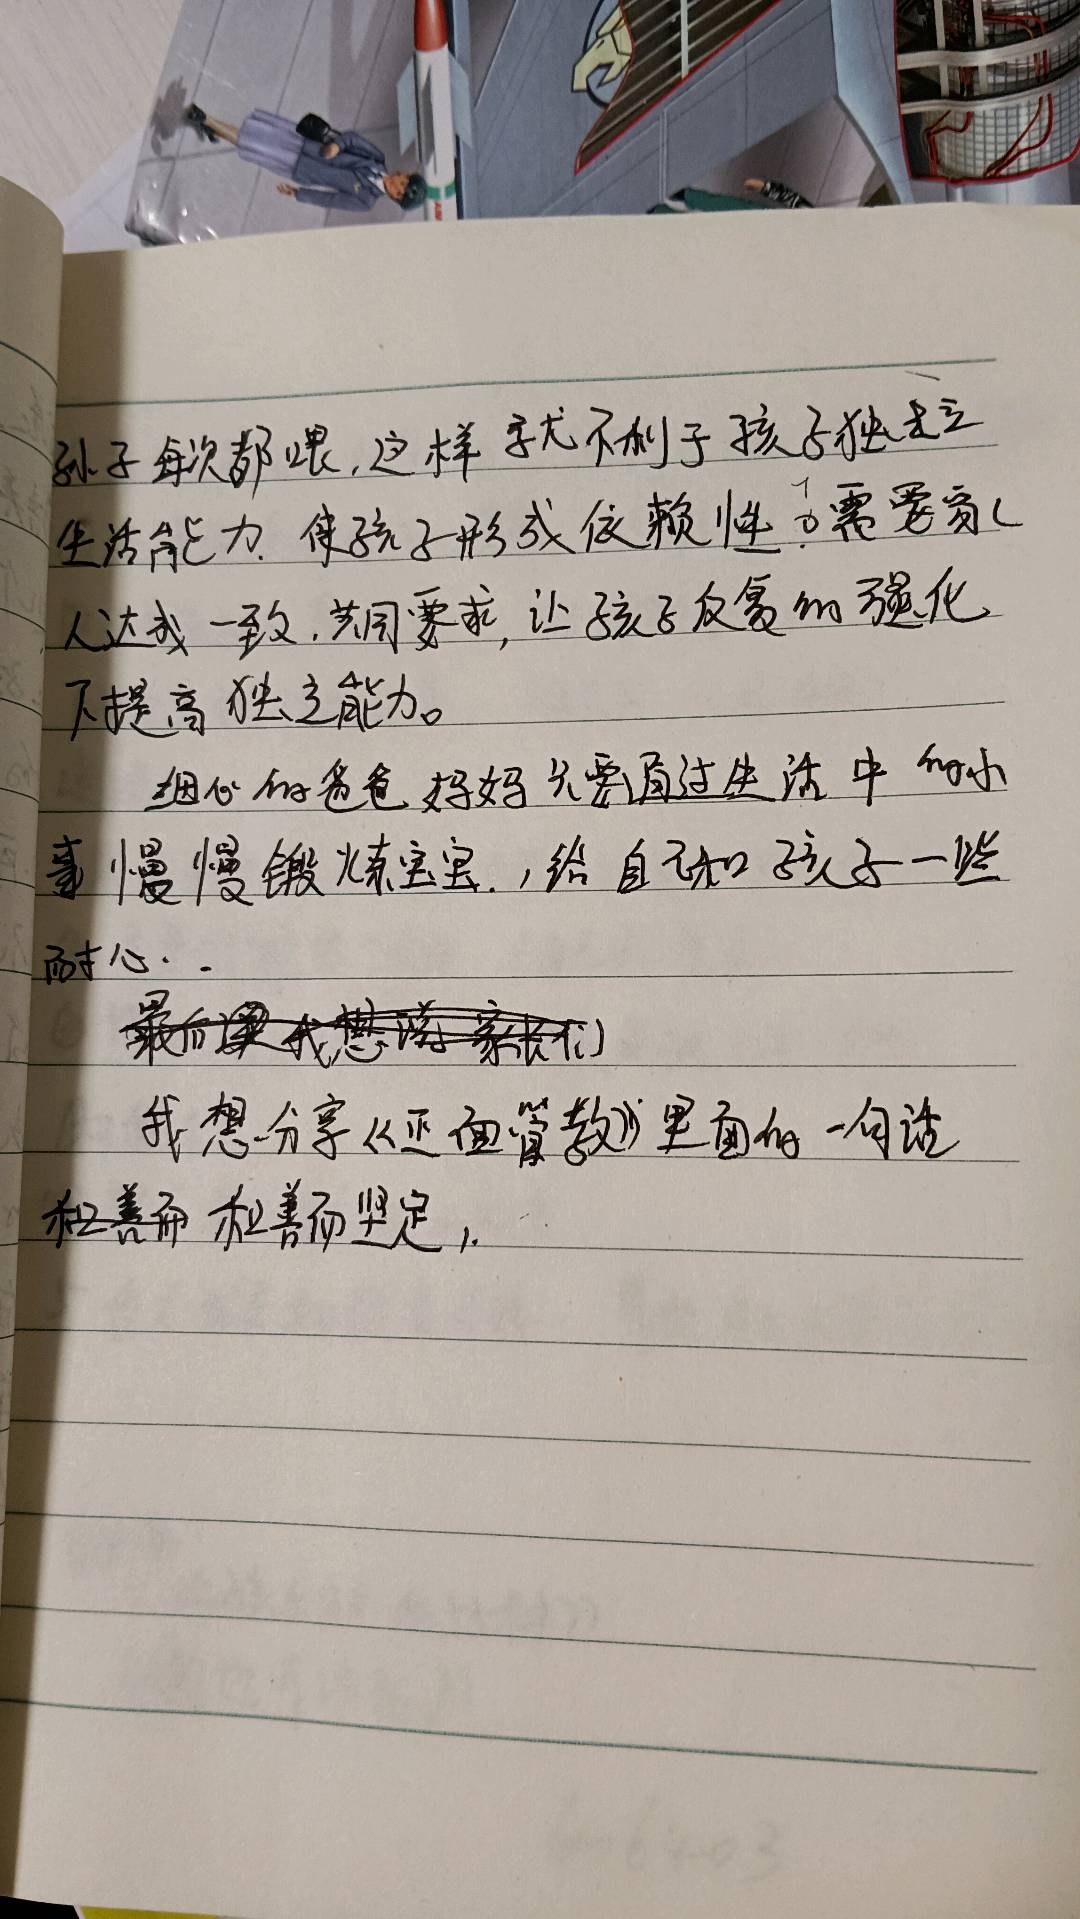 孙子每次都喂,这样就不利于孩子独立
生活能力.使孩子形成依赖性.需要家
人达成一致,共同要求,让孩子反复的强化
下提高独立能力。
细心的爸爸妈妈只要通过生活中的小
事慢慢锻炼宝宝.,给自己和孩子一些
耐心..
最后 我想 家长们
我想分享《正面管教》里面的一句话
和善而 和善而坚定,.